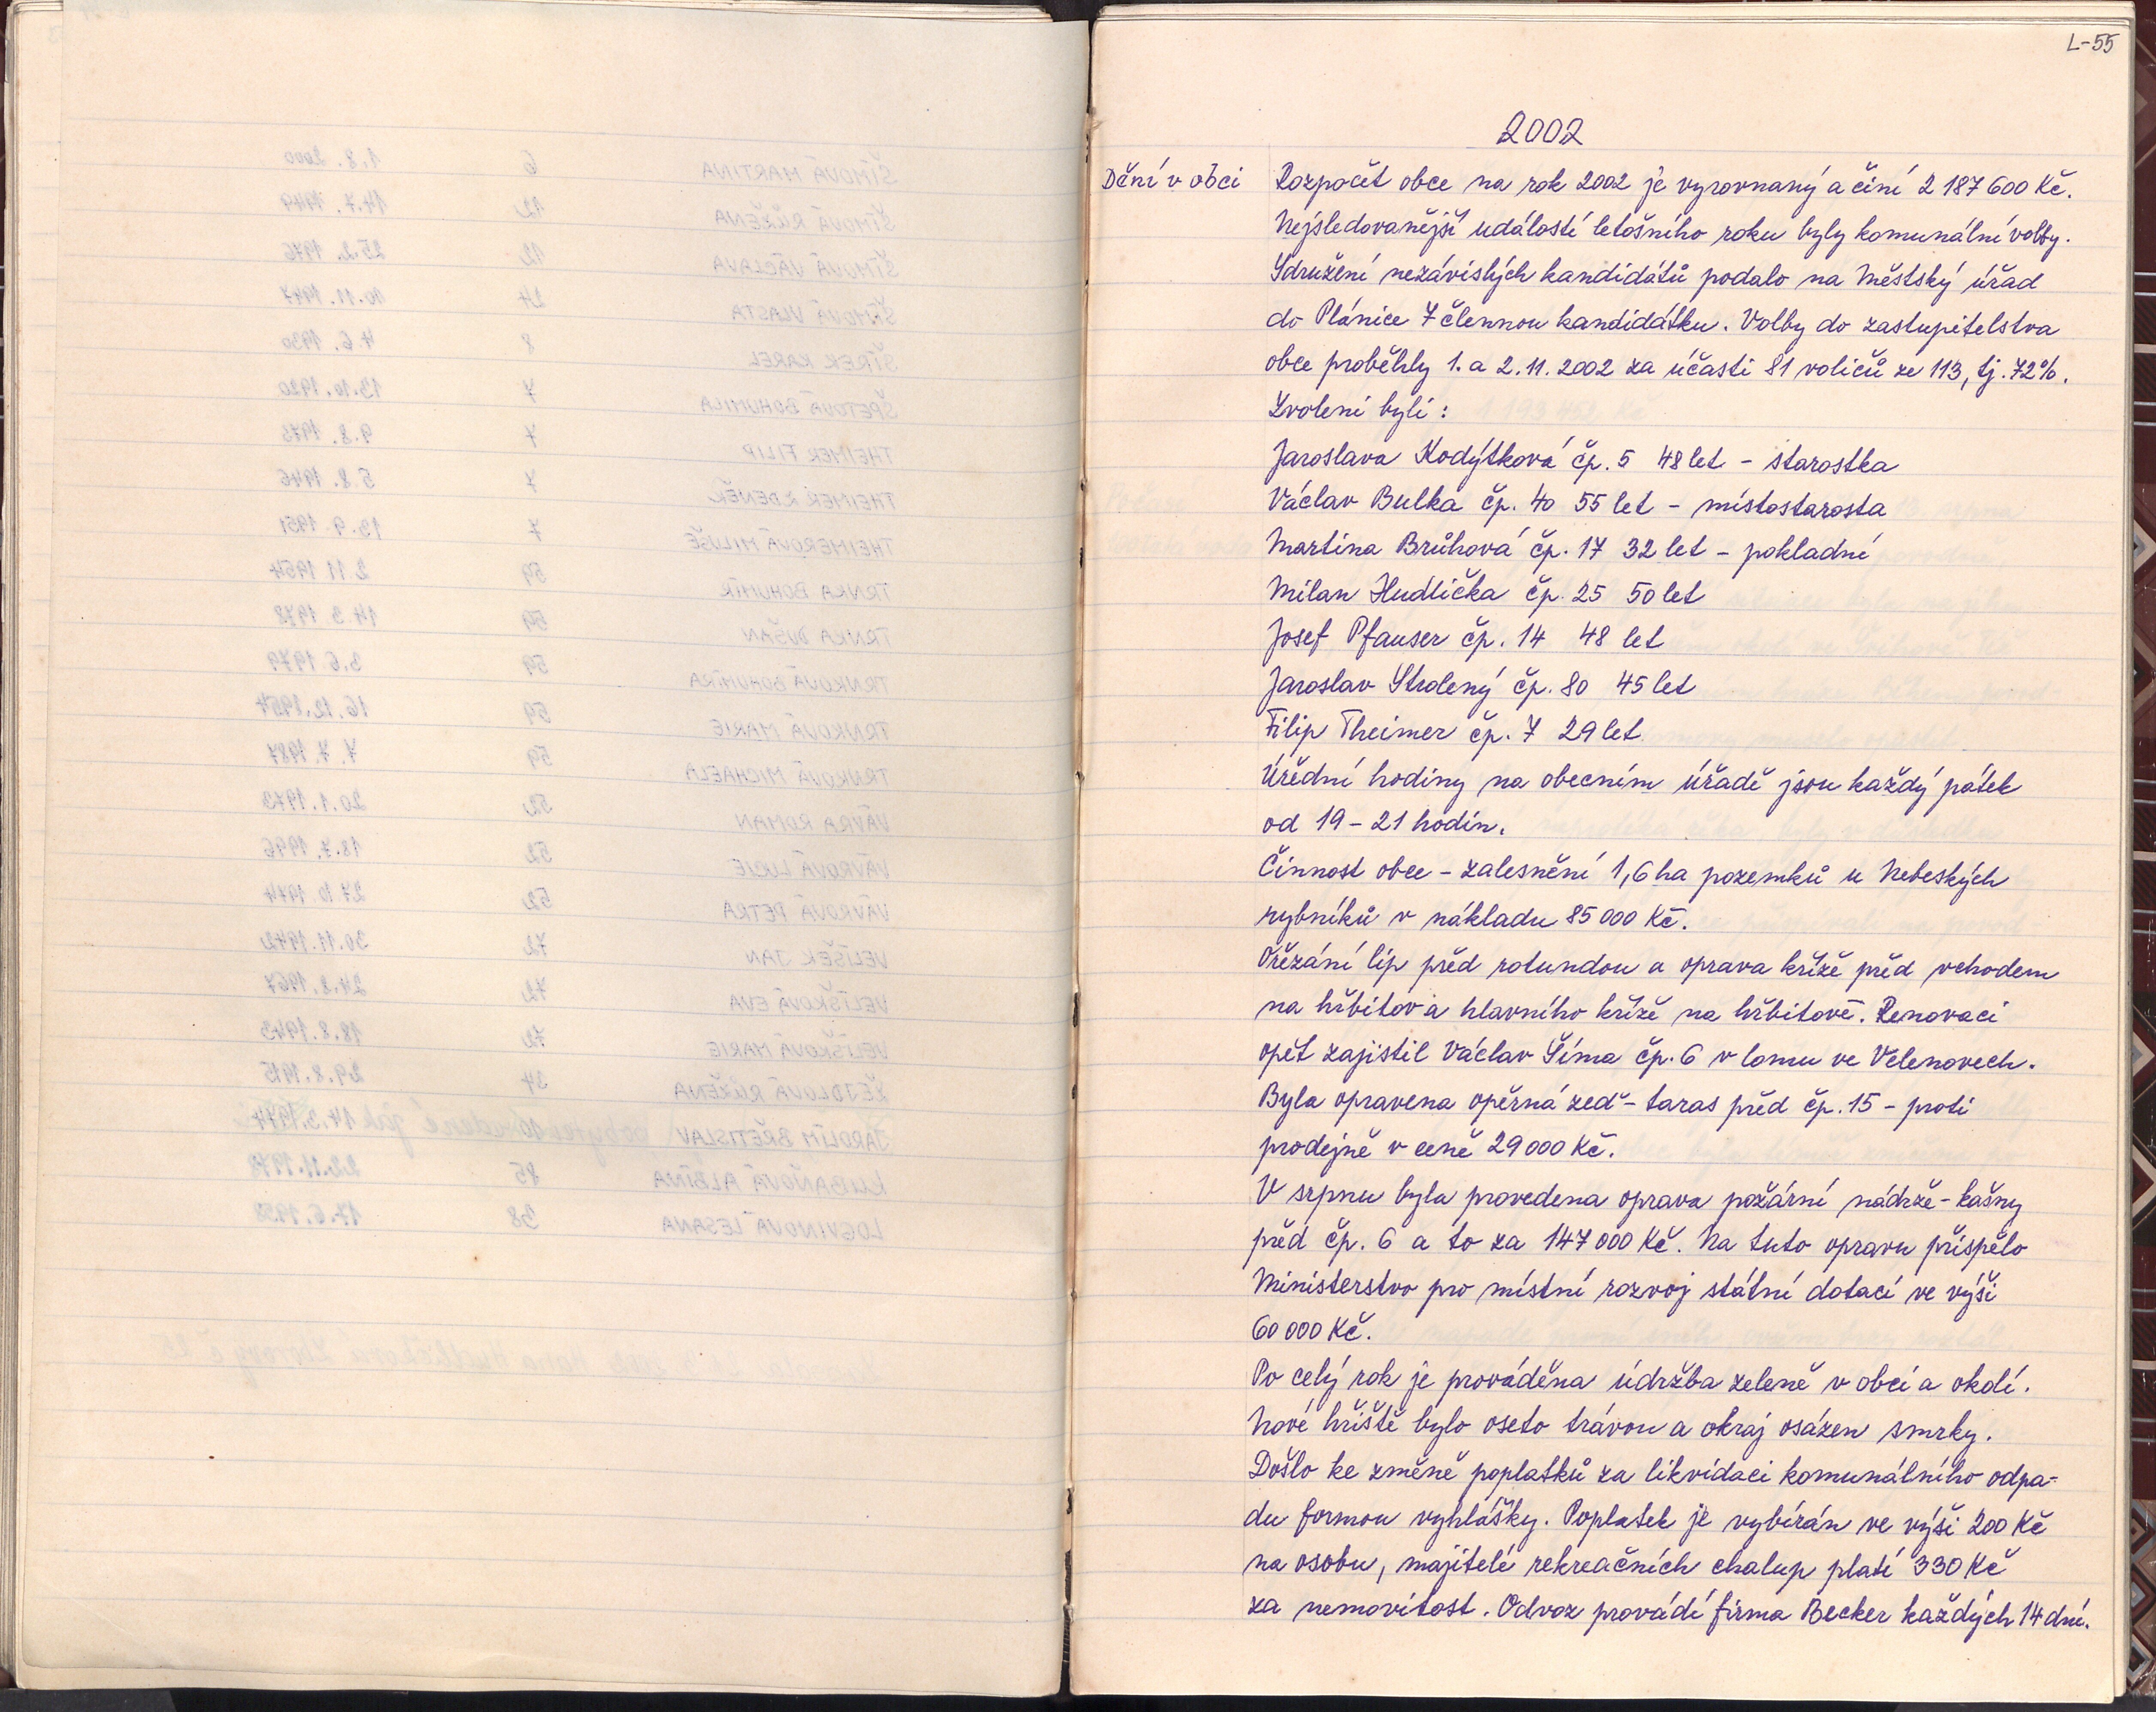 L-55
2002
Dění v obci
Rozpočet obce na rok 2002 je vyrovnaný a činí 2 187 600 Kč.
Nejsledovanější událostí letošního roku byly komunální volby.
Sdružení nezávislých kandidátů podalo na Městský úřad
do Plánice 7 člennou kandidátku. Volby do zastupitelstva
obce proběhly 1. a 2. 11. 2002 za účasti 81 voličů ze 113, tj. 72%.
Zvoleni byli :
Jaroslava Kodýtková čp. 5 48 let - starostka
Václav Bulka čp. 40 55 let - místostarosta
Martina Brůhová čp. 17 32 let - pokladní
Milan Hudlička čp. 25 50 let
Josef Pfauser čp. 14 48 let
Jaroslav Strolený čp. 80 45 let
Filip Theimer čp. 7 29 let
Úřední hodiny na obecním úřadě jsou každý pátek
od 19 - 21 hodin.
Činnost obce - zalesnění 1,6 ha pozemků u Nebeských
rybníků v nákladu 85 000 Kč.
Ořezání lip před rotundou a oprava kříže před vchodem
na hřbitov a hlavního kříže na hřbitově. Renovaci
opět zajistil Václav Šíma čp. 6 v lomu ve Velenovech.
Byla opravena opěrná zeď - taras před čp. 15 - proti
prodejně v ceně 29 000 Kč.
V srpnu byla provedena oprava požární nádrže - kašny
před čp. 6 a to za 147 000 Kč. Na tuto opravu přispělo
Ministerstvo pro místní rozvoj státní dotací ve výši
60 000 Kč.
Po celý rok je prováděna údržba zeleně v obci a okolí.
Nové hřiště bylo oseto trávou a okraj osázen smrky.
Došlo ke změně poplatků za likvidaci komunálního odpa-
du formou vyhlášky. Poplatek je vybírán ve výši 200 Kč
na osobu, majitelé rekreačních chalup platí 330 Kč
za nemovitost. Odvoz provádí firma Becker každých 14 dní.